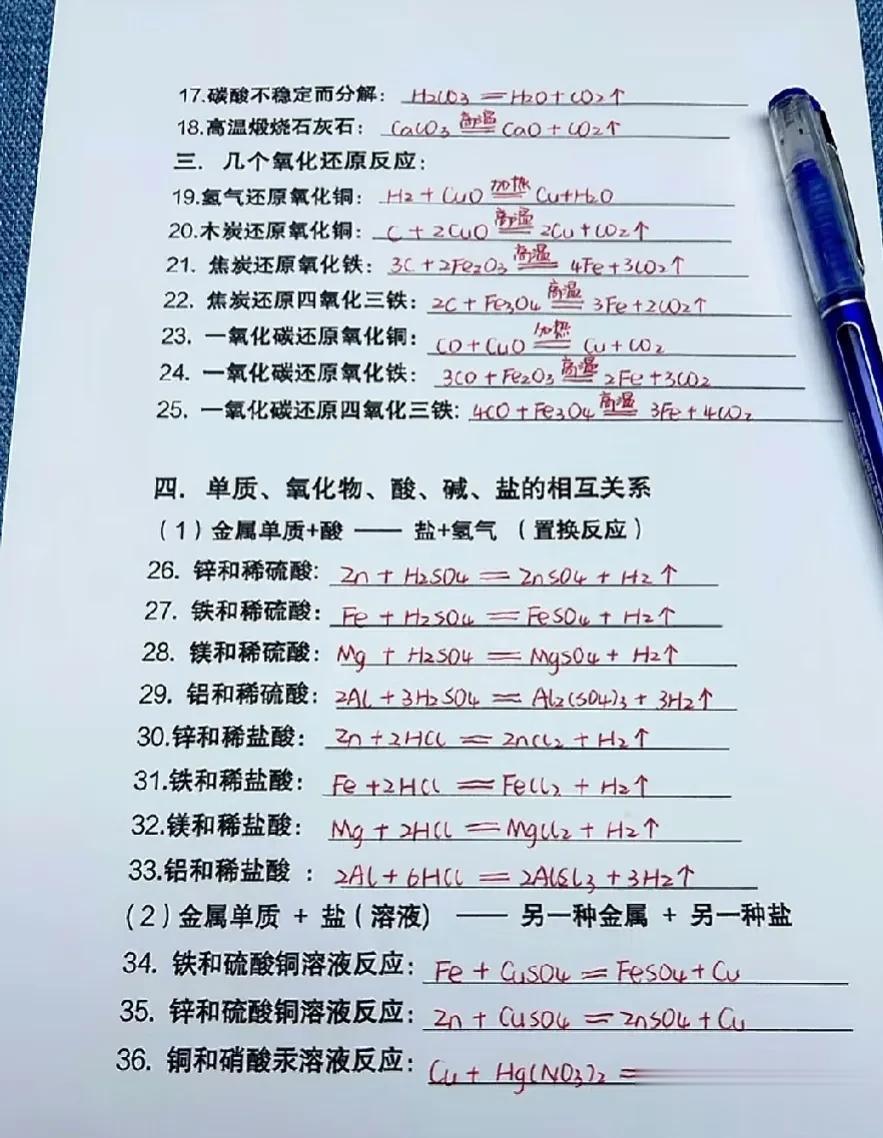 17.碳酸不稳定而分解: H2CO3 = H2O+CO2↑
18.高温煅烧石灰石: CaCO3 高温 CaO + CO2↑
三. 几个氧化还原反应:
19.氢气还原氧化铜: H2 + CuO 加热 Cu+H2O
20.木炭还原氧化铜: C + 2CuO 高温 2Cu + CO2↑
21. 焦炭还原氧化铁: 3C + 2Fe2O3 高温 4Fe + 3CO2↑
22. 焦炭还原四氧化三铁: 2C + Fe3O4 高温 3Fe + 2CO2↑
23. 一氧化碳还原氧化铜: CO + CuO 加热 Cu + CO2
24. 一氧化碳还原氧化铁: 3CO + Fe2O3 高温 2Fe + 3CO2
25. 一氧化碳还原四氧化三铁: 4CO + Fe3O4 高温 3Fe + 4CO2
四. 单质、氧化物、酸、碱、盐的相互关系
(1)金属单质+酸 —— 盐+氢气 (置换反应)
26. 锌和稀硫酸: Zn + H2SO4 = ZnSO4 + H2↑
27. 铁和稀硫酸: Fe + H2SO4 = FeSO4 + H2↑
28. 镁和稀硫酸: Mg + H2SO4 = MgSO4 + H2↑
29. 铝和稀硫酸: 2Al + 3H2SO4 = Al2(SO4)3 + 3H2↑
30.锌和稀盐酸: Zn + 2HCl = ZnCl2 + H2↑
31.铁和稀盐酸: Fe +2HCl = FeCl2 + H2↑
32.镁和稀盐酸: Mg + 2HCl = MgCl2 + H2↑
33.铝和稀盐酸 : 2Al + 6HCl = 2AlCl3 + 3H2↑
(2)金属单质 + 盐(溶液) —— 另一种金属 + 另一种盐
34. 铁和硫酸铜溶液反应: Fe + CuSO4 = FeSO4 + Cu
35. 锌和硫酸铜溶液反应: Zn + CuSO4 = ZnSO4 + Cu
36. 铜和硝酸汞溶液反应: Cu + Hg(NO3)2 =